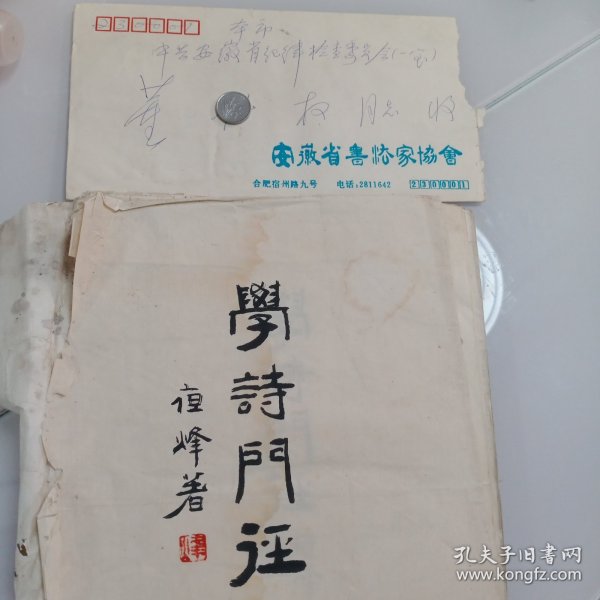 230001
本市
中共安徽省纪律检查委员会(一室)
董 权 同志 收
安徽省書法家協會
合肥宿州路九号 电话:2811642 230001
學詩門徑
恒烽著
孔夫子旧书网
www.kongfz.com